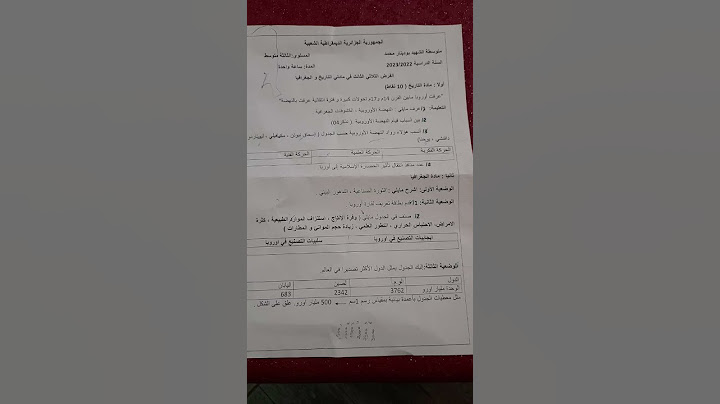 الجمهورية الجزائرية الديمقراطية الشعبية
متوسطة الشهيد بودينار محمد المستوى: الثالثة متوسط
السنة الدراسية 2023/2022 المدة: ساعة واحدة
الفرض الثلاثي الثالث في مادتي التاريخ و الجغرافيا
أولا : مادة التاريخ ( 10 نقاط)
"عرفت أوروبا مابين القرن 14م و17م تحولات كبيرة و فترة انتقالية عرفت بالنهضة"
التعليمة: 1/ عرف مايلي : النهضة الأوروبية ، الكشوفات الجغرافية
2/ بين أسباب قيام النهضة الأوروبية (
3/ انسب هؤلاء رواد النهضة الأوروبية حسب الجدول ( إسحاق نيوتن ، ميكيافيلي ،
دافنشي ،
الحركة الفكرية الحركة العلمية الحركة الفنية
4/ عدد منافذ انتقال تأثير الحضارة الإسلامية إلى أوروبا
ثانيا : مادة الجغرافيا
الوضعية الأولى: اشرح مايلي : الثورة الصناعية ، التدهور البيئي
الوضعية الثانية: 1/ قدم بطاقة تعريف لقارة أوروبا
2/ صنف في الجدول مايلي ( وفرة الإنتاج ، استنزاف الموارد الطبيعية ، كثرة
الامراض، الاحتباس الحراري ، التطور العلمي ، زيادة حجم الموانئ و المطارات )
ايجابيات التصنيع في أوروبا سلبيات التصنيع في أوروبا
الوضعية الثالثة: إليك الجدول يمثل الدول الأكثر تصديرا في العالم
الدول الو م الصين اليابان
الوحدة مليار اورو 3762 2342 683
مثل معطيات الجدول بأعمدة بيانية بمقياس رسم 1سم 500 مليار اورو. علق على الشكل